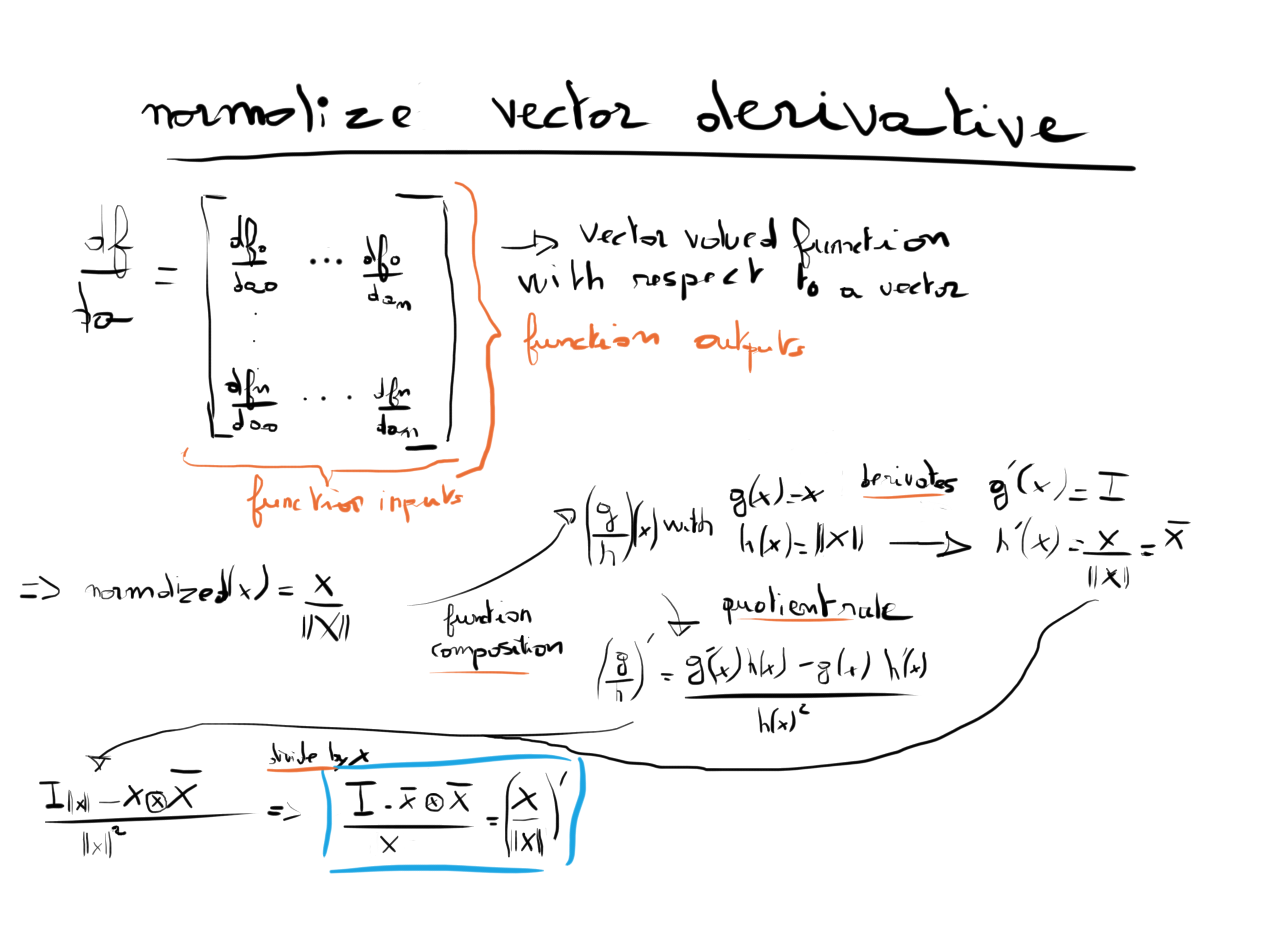 normalize vector derivative
df/da = [ df₀/da₀ ··· df₀/daₙ
.
.
dfₙ/da₀ ···· dfₙ/daₙ ]
→ vector valued function
with respect to a vector
function outputs
function inputs
=> normalized(x) = x/||x||
function
composition
(g/h)(x) with
g(x)=x
h(x)=||x||
derivates
g'(x) = I
h'(x) = x/||x|| = x̄
quotient rule
(g/h)' = (g'(x) h(x) - g(x) h'(x))/h(x)²
(I||x|| - x⊗x̄)/||x||²
divide by x
=> (I - x̄⊗x̄)/x = (x/||x||)'